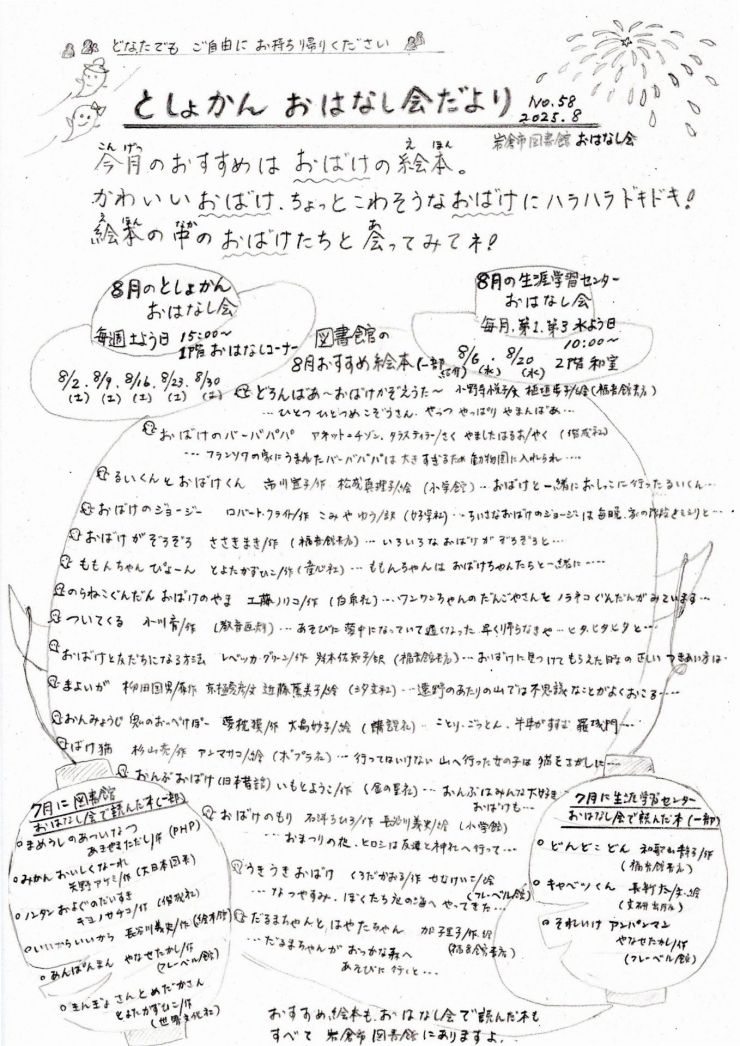 どなたでも ご自由に お持ち帰りください
としょかん おはなし会だより No.58 2025.8
岩倉市図書館 おはなし会
今月のおすすめは おばけの絵本。
かわいいおばけ、ちょっとこわそうなおばけにハラハラドキドキ!
絵本の中のおばけたちと会ってみてネ!
8月のとしょかん
おはなし会
毎週土よう日 15:00〜
1階おはなしコーナー
8/2.8/9.8/16.8/23.8/30
(土) (土) (土) (土) (土)
8月の生涯学習センター
おはなし会
毎月、第1、第3水よう日
10:00〜
8/6 . 8/20 2階 和室
(水) (水)
図書館の
8月おすすめ絵本(一部紹介)
どろんばあ〜おばけかぞえうた〜 小野寺悦子/文 (福音館書店)
…ひとつ ひとつめこぞうさん、やっつ やっぱり やまんばあ…
おばけのバーバパパ アネット=チゾン、タラスティラー/さく やましたはるお/やく (偕成社)
…フランソワの家にうまれたバーバパパは大きすぎるため動物園に入れられ…
るいくんとおばけくん 市川宣子/作 松成真理子/絵 (小学館)…おばけと一緒におしっこに行ったるいくん…
おばけのジョージー ロバート・ブライト/作 こみやゆう/訳 (好学社)…ちいさなおばけのジョージーは毎晩、家の階段をミシリと…
おばけがぞろぞろ ささきまき/作 (福音館書店)…いろいろなおばけがぞろぞろと…
ももんちゃん ぴょーん とよたかずひこ/作 (童心社)…ももんちゃんは おばけちゃんたちと一緒に…
のらねこぐんだん おばけのやま 工藤ノリコ/作 (白泉社)…ワンワンちゃんのだんごやさんをノラネコぐんだんがみています…
ついてくる 小川育/作 (教育画劇)…あそびに夢中になっていて遅くなった 早く帰らなきゃ…ヒタ、ヒタヒタと…
おばけと友だちになる方法 レベッカ・グリーン/作 岩木佐知子/訳 (福音館書店)…おばけに見つけてもらえた時の正しいつきあい方は…
まよいが 柳田国男/原作 京極夏彦/文 近藤薫美子/絵 (汐文社)…遠野のあたりの山では不思議なことがよくおこる…
おんみょうじ 鬼のおっぺけぽー 夢枕獏/作 大島妙子/絵 (講談社)…ことり、ごっとん、牛車がすすむ 羅城門…
ばけ猫 杉山亮/作 アンマサコ/絵 (ポプラ社)…行ってはいけない 山へ行った女の子は 猫をさがしに…
おんぶおばけ(日本昔話) いもとようこ/作 (金の星社)…おんぶはみんな大好き
おばけも…
おばけのもり 石津ちひろ/作 長谷川義史/絵 (小学館)
…おまつりの夜、ヒロシは友達と神社へ行って…
うきうきおばけ くろだかおる/作 せなけいこ/絵
(フレーベル館)
…なつやすみ、ぼくたち夜の海へ やってきた…
だるまちゃんと はやたちゃん 加古里子/作・絵
(福音館書店)
…だるまちゃんが おっかな森へ
あそびに行くと…
7月に図書館
おはなし会で読んだ本(一部)
○まめうしのあついなつ
あきやまただし/作 (PHP)
○みかん おいしくなーれ
矢野アケミ/作 (大日本図書)
○ノンタン およぐのだいすき
キヨノサチコ/作 (偕成社)
○いいからいいから 長谷川義史/作 (絵本館)
○あんぱんまん やなせたかし/作
(フレーベル館)
○きんぎょさんとめだかさん
とよたかずひこ/作
(世界文化社)
7月に生涯学習センター
おはなし会で読んだ本(一部)
○どんどこどん 和歌山静子/作
(福音館書店)
○キャベツくん 長新太/文・絵
(文研出版)
○それいけ アンパンマン
やなせたかし/作
(フレーベル館)
おすすめ絵本も、おはなし会で読んだ本も
すべて 岩倉市図書館にありますよ。